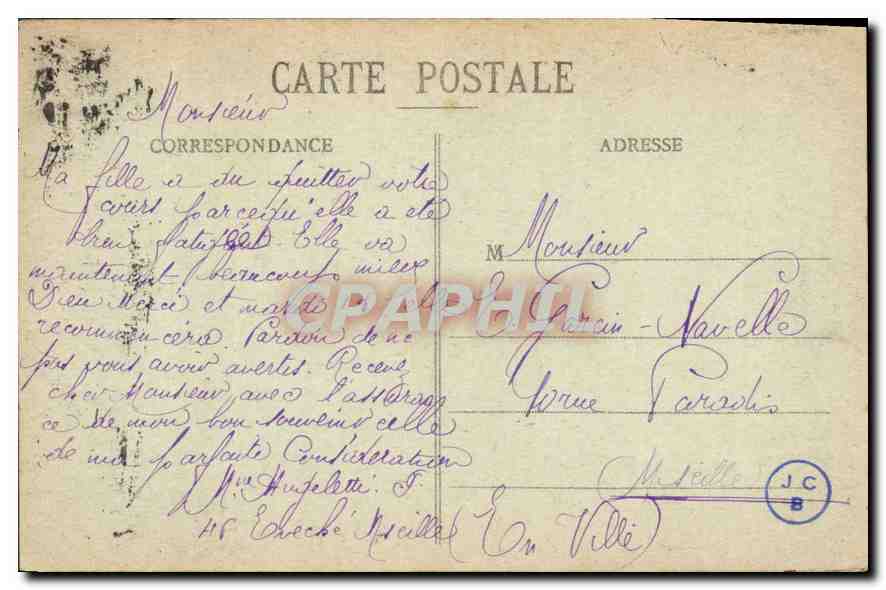 CARTE POSTALE
Monsieur
CORRESPONDANCE
Ma fille a du quitter votre
cours parcequ'elle a été
bien fatiguée. Elle va
maintenant beaucoup mieux
Dieu Merci et mardi elle
recommencera. Pardon de ne
pas vous avoir avertis. Recevez
cher Monsieur avec l'assuran
ce de mon bon souvenir celle
de ma parfaite Considération
Mme Angeletti. F.
48 Eveché Mseille
ADRESSE
M Monsieur
E. Garcin-Navelle
rue Paradis
Mseille
(En Ville)
JC
B
CPAPHIL